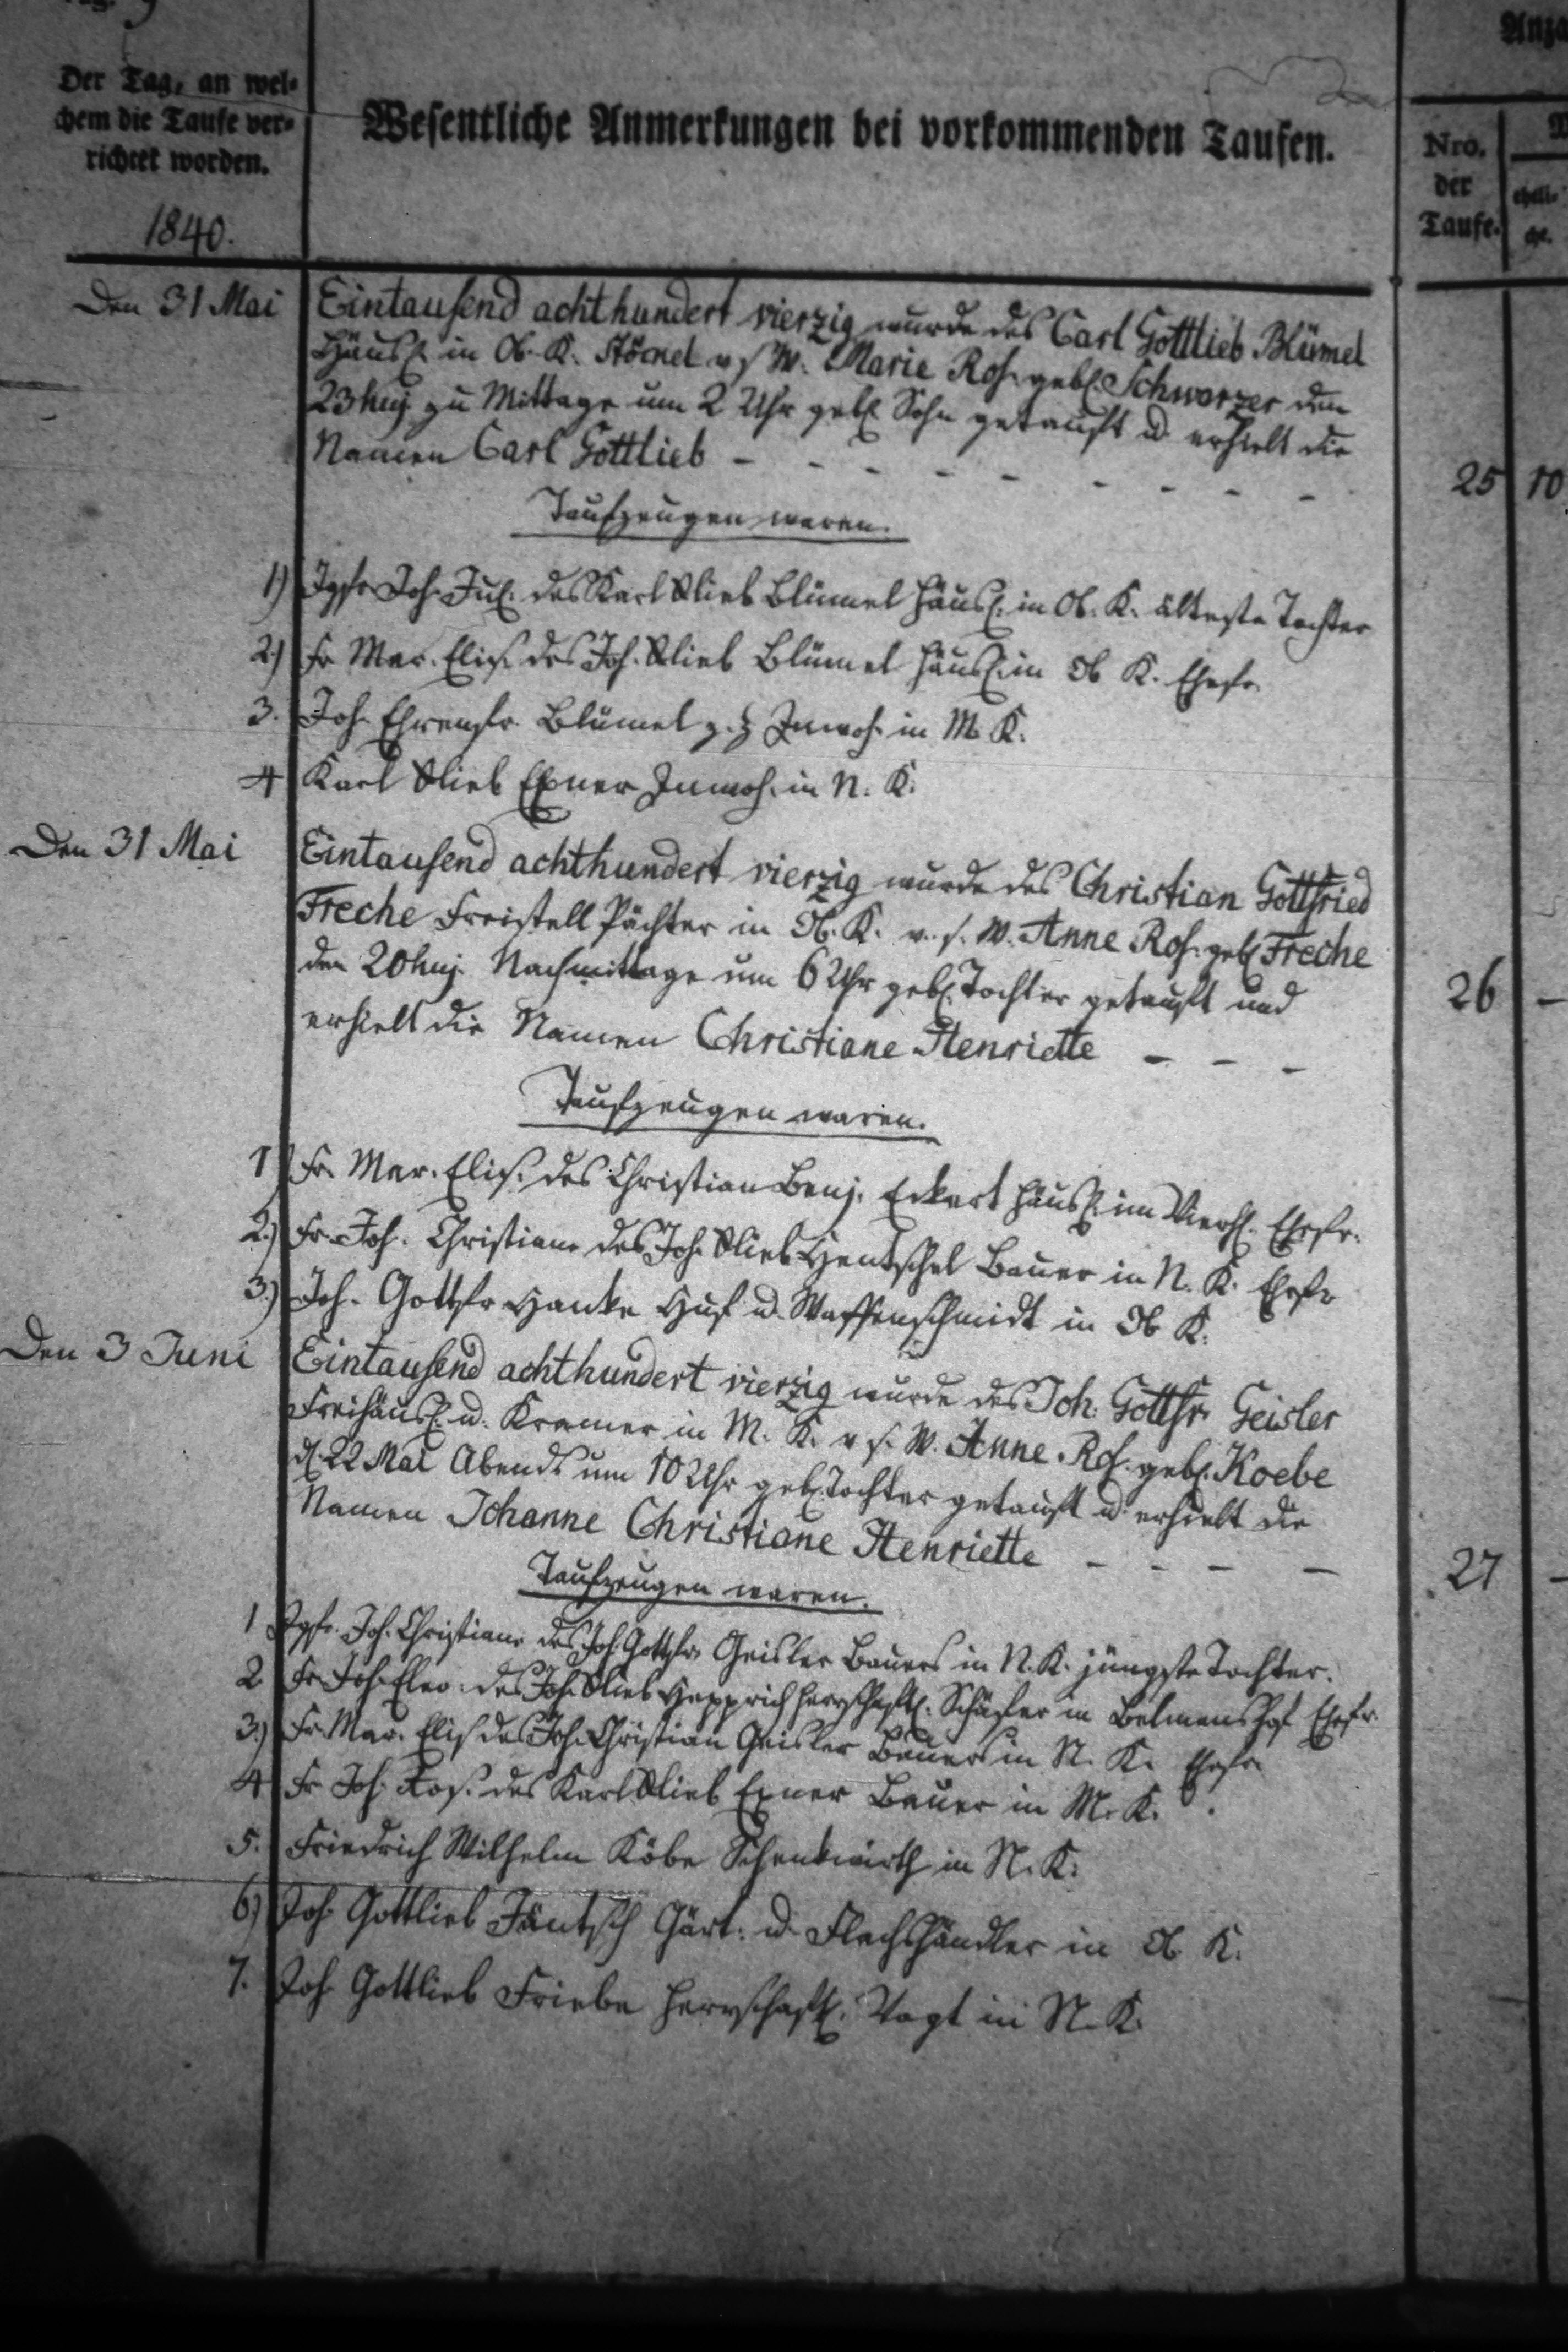 Der Tag, an wel-
chem die Taufe ver-
richtet worden.
1840.
Wesentliche Anmerkungen bei vorkommenden Taufen.
Nro.
der
Taufe.
eheli-
che.
Den 31 Mai
Eintausend achthundert vierzig wurde des Carl Gottlieb Blümel
Häusl. in Ob. K. v s W. Marie Ros. gebl. Schwarzer den
23 huj zu Mittage um 2 Uhr gebl Sohn getauft u. erhielt die
Namen Carl Gottlieb - - - - - - - - -
25 10
Taufzeugen waren.
1) Jgfr Joh. Jul. des Karl Glieb Blümel Häusl. in Ob. K. älteste Tochter
2.) Fr Mar. Elis. des Joh. Glieb Blümel Häusl. in Ob K. Ehefr.
3. Joh Ehrenfr. Blümel z. Z Inwoh. in M. K.
4 Karl Glieb Exner Inwoh. in N. K.
Den 31 Mai
Eintausend achthundert vierzig wurde des Christian Gottfried
Freche Freistell Pächter in Ob. K. v. s. W. Anne Ros. gebl Freche
den 20 huj. Nachmittage um 6 Uhr gebl. Tochter getauft und
erhielt die Namen Christiane Henriette - - -
26 -
Taufzeugen waren.
1) Fr. Mar. Elis. des Christian Benj. Eckert Häusl. im Ehefr.
2.) Fr. Joh. Christiane des Joh. Glieb Hentschel Bauer in N. K. Ehefr
3.) Joh. Gottfr Hanke Huf u. Waffenschmidt in Ob K.
Den 3 Juni
Eintausend achthundert vierzig wurde des Joh. Gottfr. Geisler
Freihäusl. u. Kramer in M. K. v s. W. Anne Ros. gebl. Koebe
d. 22 Mai Abends um 10 Uhr gebl. Tochter getauft u. erhielt die
Namen Johanne Christiane Henriette - - - -
27 -
Taufzeugen waren.
1 Jgfr. Joh. Christiane des Joh. Gottfr. Geisler Bauers in N. K. jüngste Tochter.
2 Fr Joh. Eleo. des Joh. Glieb herrschaftl. Schäfer in Ehefr.
3.) Fr. Mar. Elis des Joh. Christian Geisler Bauers in N. K. Ehefr
4 Fr Joh. Ros. des Karl Glieb Exner Bauer in M. K.
5. Friedrich Wilhelm Köbe Schenkwirth in N. K.
6) Joh. Gottlieb Jäntsch Gärt. u. Flachshändler in Ob K.
7. Joh Gottlieb Friebe herrschaftl. Vogt in N. K.